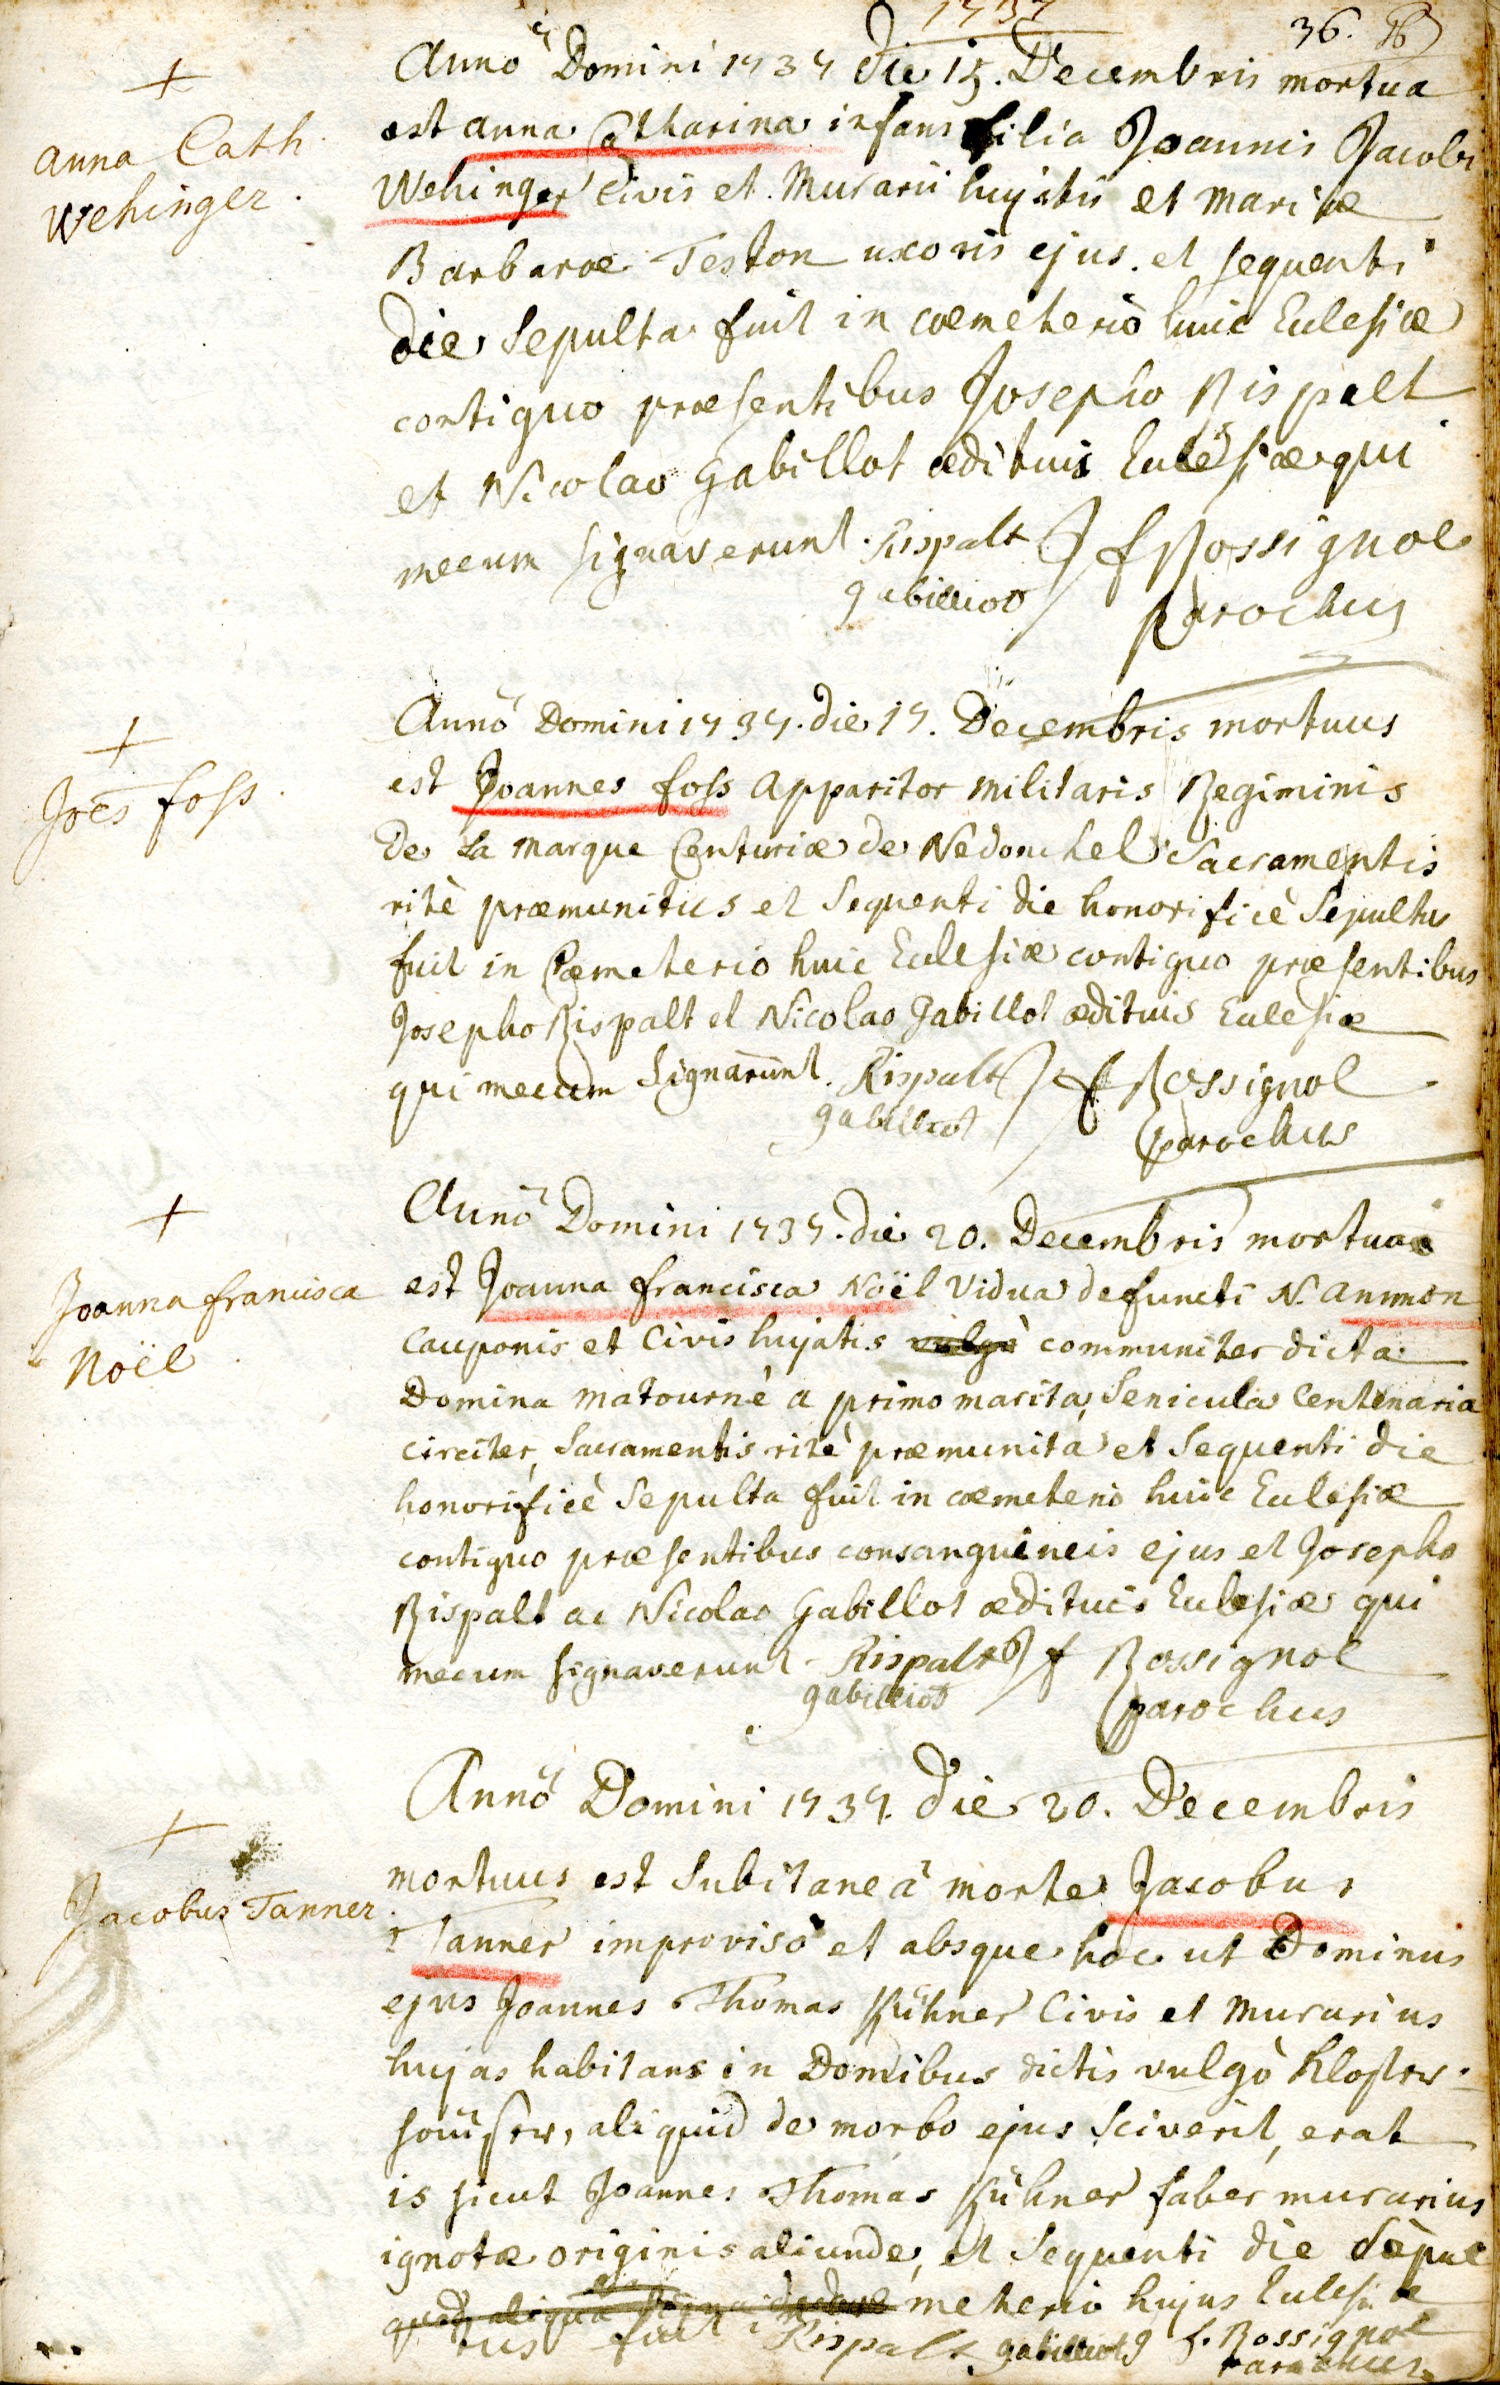 1737
36.
Anno Domini 1737 die 15. Decembris mortua
est anna Catharina infans filia Joannis Jacobi
Wehinger Civis et Murarii hujatis et Mariæ
Barbaræ Teston uxoris ejus. et sequenti
die sepulta fuit in cœmeterio huic Eclesiæ
contiguo præsentibus Josepho Rispalt
et Nicolao Gabillot ædituis Eclesiæ qui
mecum signaverunt. Rispalt J f Rossignol
gabilliot parochus
+
anna Cath.
Wehinger.
Annô Domini 1737. die 17. Decembris mortuus
est Joannes foss Apparitor Militaris Regiminis
De La Marque Centuriæ de Nedonchel Sacramentis
ritè præmunitus et Sequenti die honorificè Sepultus
fuit in Cœmeterio huic Eclesiæ contiguo præsentibus
Josepho Rispalt et Nicolao Gabillot ædituis Eclesiæ
qui mecum Signarunt. Rispalt J f Rossignol
gabilliot parochus
+
Joes foss.
Annô Domini 1737. die 20. Decembris mortua
est Joanna francisca Noël Vidua defuncti N. Ammon
Cauponis et Civis hujatis vulgò communiter dicta
Domina Matournè a primo marito, Senicula Centenaria
circiter, Sacramentis ritè præmunita et Sequenti die
honorificè Sepulta fuit in cœmeterio huic Eclesiæ
contiguo præsentibus consanguineis ejus et Josepho
Rispalt ac Nicolao Gabillot ædituis Eclesiæ qui
mecum signaverunt. Rispalt J f Rossignol
gabilliot parochus
+
Joanna francisca
Noël
Annô Domini 1737. die 20. Decembris
mortuus est Subitaneâ morte Jacobus
Tanner improvisò et absque hoc ut Dominus
ejus Joannes Thomas Kühner Civis et Murarius
hujas habitans in Domibus dictis vulgò Kloster-
häuser, aliquid de morbo ejus Sciverit, erat
is sicut Joannes Thomas Kühner faber murarius
ignotæ originis aliunde, et Sequenti die Sepul
meterio hujus Eclesiæ
tus fuit Rispalt gabilliot J. f. Rossignol
parochus
+
Jacobus Tanner.